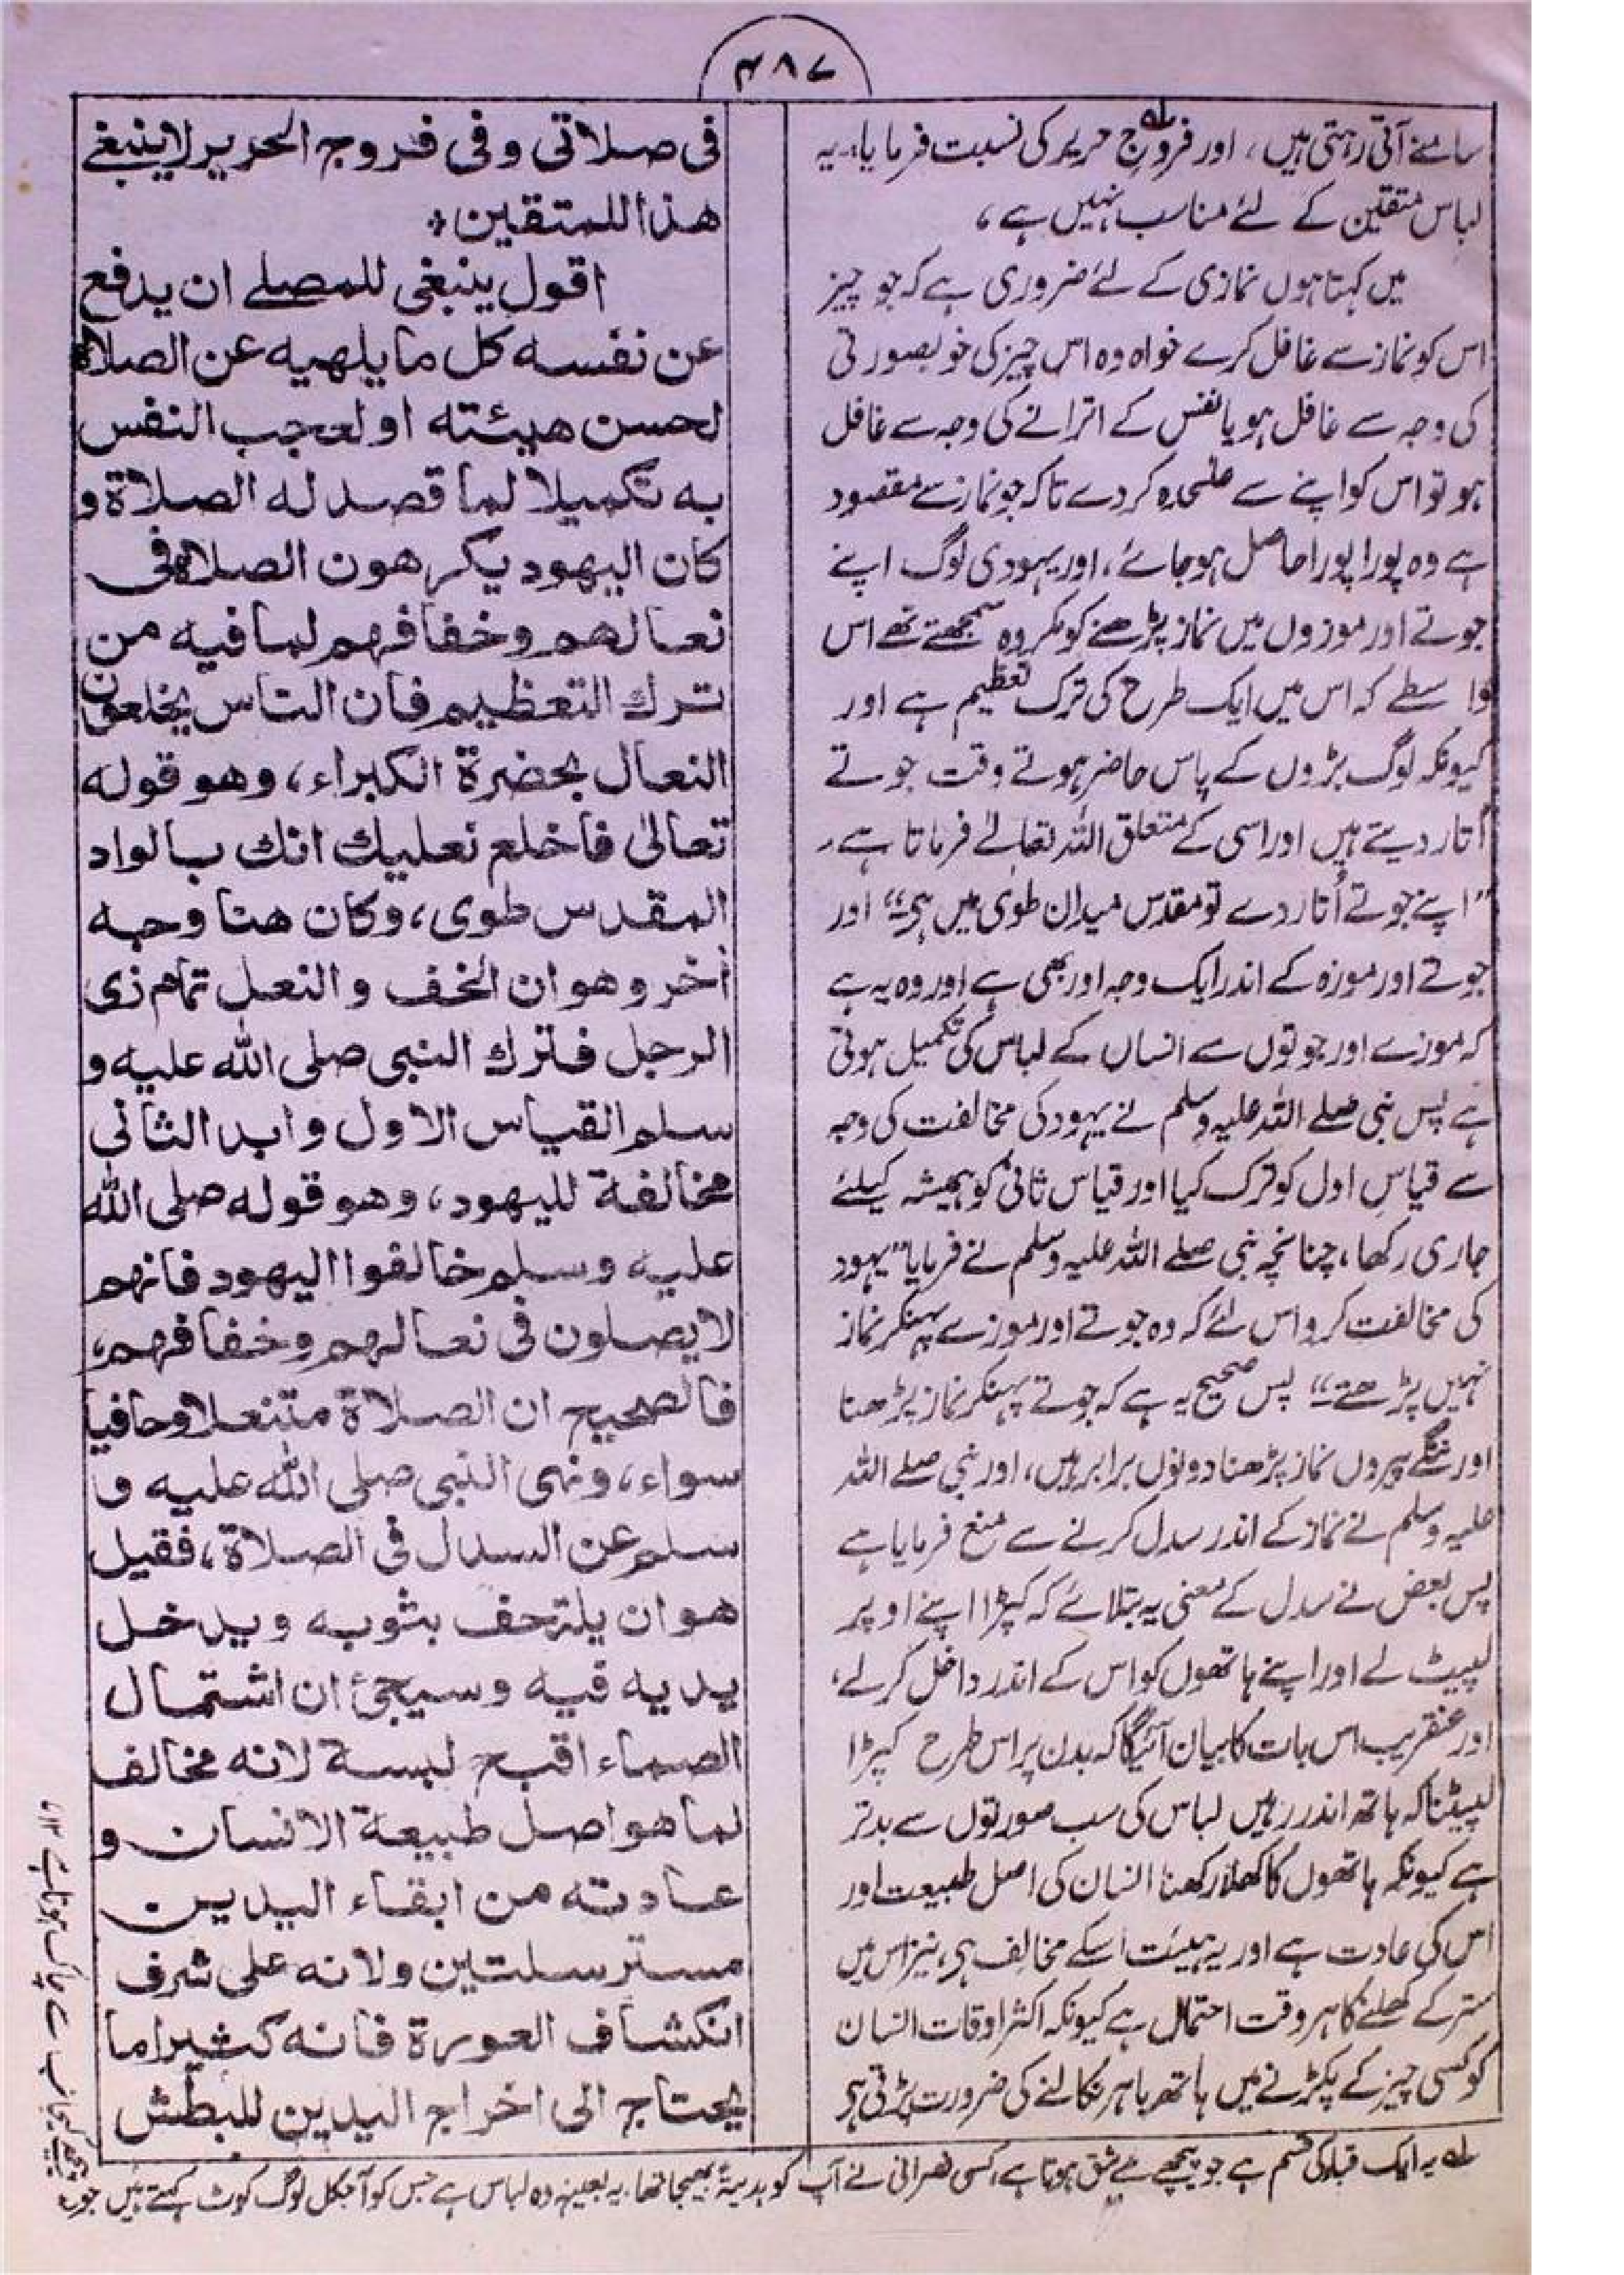 ۴۸۷
سامنے آتی رہتی ہیں، اور فروجِ حریر کی نسبت فرمایا: یہ
لباس متقین کے لئے مناسب نہیں ہے،
میں کہتا ہوں نمازی کے لئے ضروری ہے کہ جو چیز
اس کو نماز سے غافل کرے خواہ وہ اس چیز کی خوبصورتی
کی وجہ سے غافل ہو یا نفس کے اترانے کی وجہ سے غافل
ہو تو اس کو اپنے سے علٰحدہ کر دے تاکہ جو نماز سے مقصود
ہے وہ پورا پورا حاصل ہو جائے، اور یہودی لوگ اپنے
جوتے اور موزوں میں نماز پڑھنے کو مکروہ سمجھتے تھے اس
وا سطے کہ اس میں ایک طرح کی ترک تعظیم ہے اور
کیونکہ لوگ بڑوں کے پاس حاضر ہوتے وقت جوتے
اُتار دیتے ہیں اور اسی کے متعلق اللہ تعالےٰ فرماتا ہے،
"اپنے جوتے اُتار دے تو مقدس میدان طویٰ میں ہی" اور
جوتے اور موزہ کے اندر ایک وجہ اور بھی ہے اور وہ یہ ہے
کہ موزے اور جوتوں سے انسان کے لباس کی تکمیل ہوتی
ہے پس نبی صلے اللہ علیہ وسلم نے یہود کی مخالفت کی وجہ
سے قیاسِ اول کو ترک کیا اور قیاس ثانی کو ہمیشہ کیلئے
جاری رکھا، چنانچہ نبی صلے اللہ علیہ وسلم نے فرمایا "یہود
کی مخالفت کرو اس لئے کہ وہ جوتے اور موزے پہنکر نماز
نہیں پڑھتے" پس صحیح یہ ہے کہ جوتے پہنکر نماز پڑھنا
اور ننگے پیروں نماز پڑھنا دونوں برابر ہیں، اور نبی صلے اللہ
علیہ وسلم نے نماز کے اندر سدل کرنے سے منع فرمایا ہے
پس بعض نے سدل کے معنی یہ بتلائے کہ کپڑا اپنے اوپر
لپیٹ لے اور اپنے ہاتھوں کو اس کے اندر داخل کر لے،
اور عنقریب اس بات کا بیان آئیگا کہ بدن پر اس طرح کپڑا
لپیٹنا کہ ہاتھ اندر رہیں لباس کی سب صورتوں سے بدتر
ہے کیونکہ ہاتھوں کا کھلا رکھنا انسان کی اصل طبیعت اور
اس کی عادت ہے اور یہ ہیئت اسکے مخالف ہی، نیز اس میں
ستر کے کھلنے کا ہر وقت احتمال ہے کیونکہ اکثر اوقات انسان
کو کسی چیز کے پکڑنے میں ہاتھ باہر نکالنے کی ضرورت پڑتی ہی
فی صلاتی وفی فروج الحریر لاینبغے
هذا للمتقین٭
اقول ینبغی للمصلے ان یدفع
عن نفسه کل ما یلهیه عن الصلاة
لحسن هیئته او لعجب النفس
به تکمیلا لما قصد له الصلاة و
کان الیهود یکرهون الصلاة فی
نعالهم وخفافهم لما فیه من
ترك التعظیم فان الناس یخلعون
النعال بحضرة الکبراء، وهو قوله
تعالیٰ فاخلع نعلیك انك بالواد
المقدس طوی، وکان هنا وجه
أخر وهو ان الخف والنعل تمام زی
الرجل فترك النبی صلی الله علیه و
سلم القیاس الاول وابد الثانی
مخالفة للیهود، وهو قوله صلی الله
علیه وسلم خالفوا الیهود فانهم
لا یصلون فی نعالهم وخفافهم،
فالصحیح ان الصلاة متنعلا وحافیا
سواء، ونهی النبی صلی الله علیه و
سلم عن السدل فی الصلاة، فقیل
هو ان یلتحف بثوبه ویدخل
یدیه فیه وسیجیٔ ان اشتمال
الصماء اقبح لبسة لانه مخالف
لما هو اصل طبیعة الانسان و
عادته من ابقاء الیدین
مسترسلتین ولانه علی شرف
انکشاف العورة فانه کثیرا ما
یحتاج الی اخراج الیدین للبطش
لہ یہ ایک قبا کی قسم ہے جو پیچھے سے شق ہوتا ہے، کسی نصرانی نے آپ کو ہدیۃً بھیجا تھا، یہ بعینہٖ وہ لباس ہے جس کو آجکل لوگ کوٹ کہتے ہیں جو
پیچھے کیجانب سے چاک ہوتا ہے ۱۲